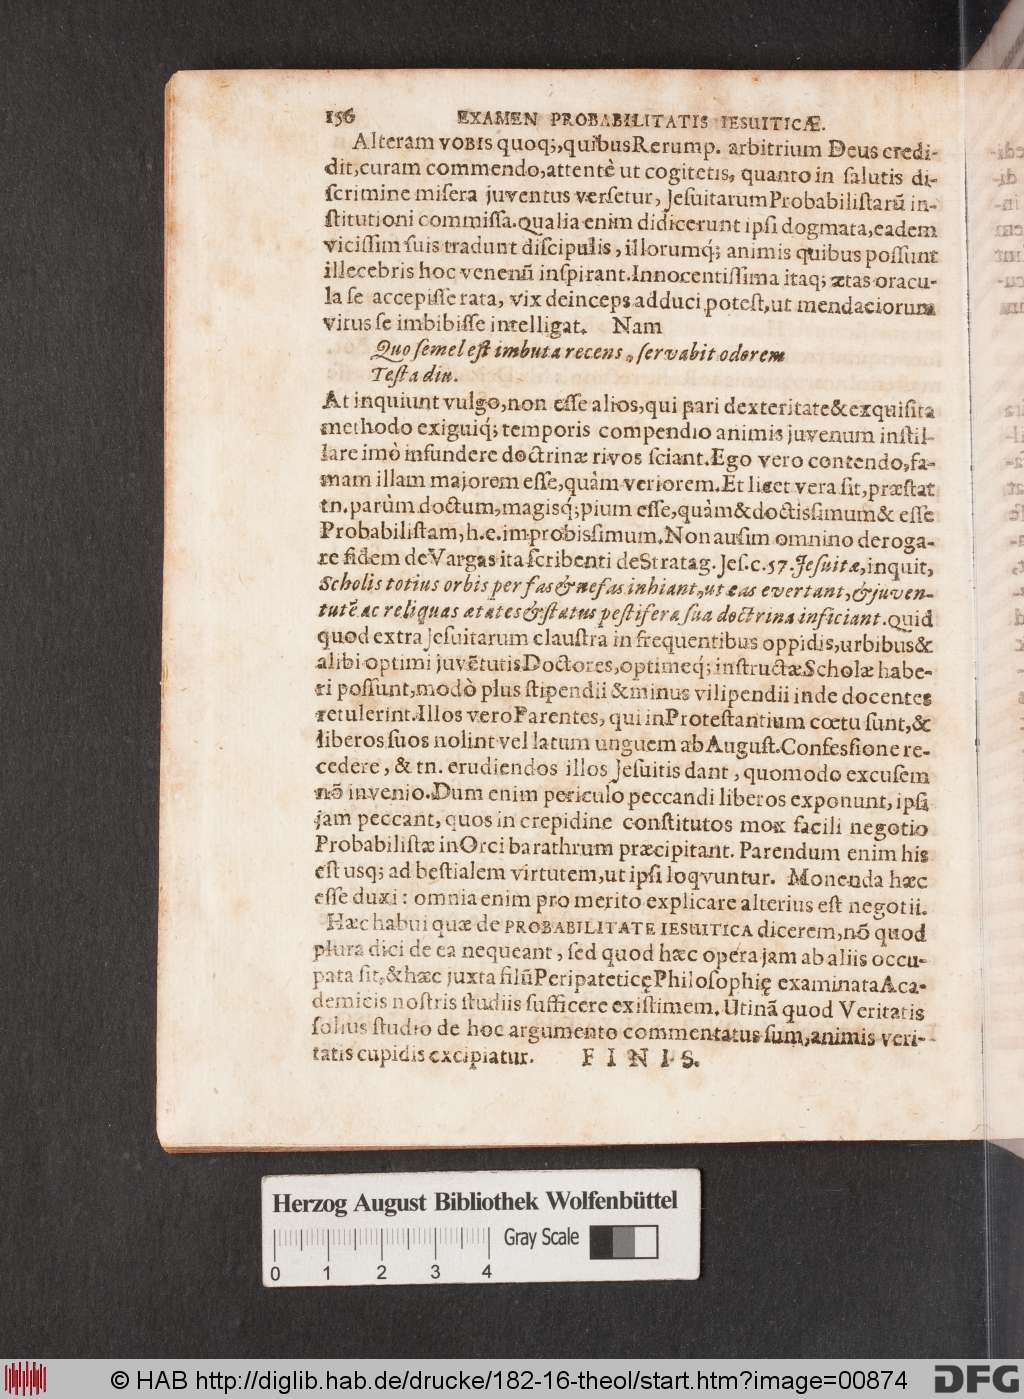 156 EXAMEN PROBABILITATIS IESUITICÆ.
Alteram VOBIS quoq;, quibus Rerump. arbitrium Deus credi-
dit, curam commendo, attentè ut cogitetis, quanto in ſalutis di-
ſcrimine miſera juventus verſetur, Jeſuitarum Probabiliſtarũ in-
ſtitutioni commiſſa. Qualia enim didicerunt ipſi dogmata, eadem
viciſſim ſuis tradunt diſcipulis, illorumq́; animis quibus poſſunt
illecebris hoc venenũ inſpirant. Innocentiſſima itaq; ætas oracu-
la ſe accepiſſe rata, vix deinceps adduci poteſt, ut mendaciorum
virus ſe imbibiſſe intelligat. Nam
Quo ſemel eſt imbuta recens, ſervabit odorem
Teſta diu.
At inquiunt vulgo, non eſſe alios, qui pari dexteritate & exquiſita
methodo exiguiq́; temporis compendio animis juvenum inſtil-
lare imò infundere doctrinæ rivos ſciant. Ego vero contendo, fa-
mam illam majorem eſſe, quàm veriorem. Et licet vera ſit, præſtat
tn. parùm doctum, magisq́; pium eſſe, quàm & doctisſimum & eſſe
Probabiliſtam, h. e. improbisſimum. Non auſim omnino deroga-
re fidem de Vargas ita ſcribenti de Stratag. Jeſ. c. 57. Jeſuitæ, inquit,
Scholis totius orbis per fas & nefas inhiant, ut eas evertant, & juven-
tutẽ ac reliquas ætates & ſtatus peſtifera ſua doctrina inficiant. Quid
quod extra Jeſuitarum clauſtra in frequentibus oppidis, urbibus &
alibi optimi juvẽtutis Doctores, optimeq́; inſtructæ Scholæ habe-
ri poſſunt, modò plus ſtipendii & minus vilipendii inde docentes
retulerint. Illos vero Parentes, qui in Proteſtantium cœtu ſunt, &
liberos ſuos nolint vel latum unguem ab Auguſt. Confesſione re-
cedere, & tn. erudiendos illos Jeſuitis dant, quomodo excuſem
nõ invenio. Dum enim periculo peccandi liberos exponunt, ipſi
jam peccant, quos in crepidine conſtitutos mox facili negotio
Probabiliſtæ in Orci barathrum præcipitant. Parendum enim his
eſt usq; ad beſtialem virtutem, ut ipſi loqvuntur. Monenda hæc
eſſe duxi: omnia enim pro merito explicare alterius eſt negotii.
Hæc habui quæ de PROBABILITATE IESUITICA dicerem, nõ quod
plura dici de ea nequeant, ſed quod hæc opera jam ab aliis occu-
pata ſit, & hæc juxta filũ Peripateticę Philoſophię examinata Aca-
demicis noſtris ſtudiis ſufficere exiſtimem. Utinã quod Veritatis
ſolius ſtudio de hoc argumento commentatus ſum, animis veri-
tatis cupidis excipiatur. FINIS.
Herzog August Bibliothek Wolfenbüttel
Gray Scale
0 1 2 3 4
© HAB http://diglib.hab.de/drucke/182-16-theol/start.htm?image=00874
DFG